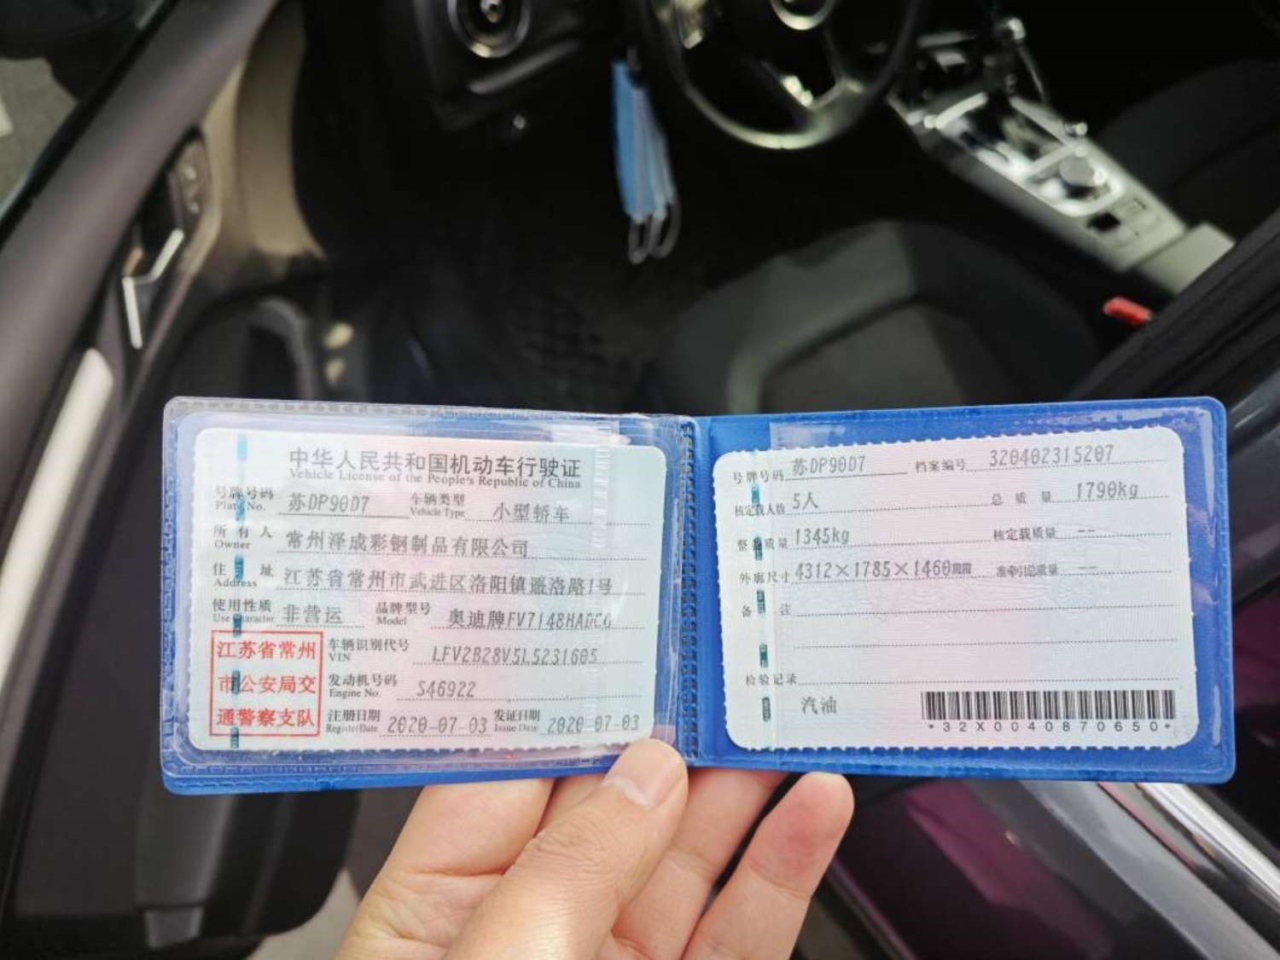 中华人民共和国机动车行驶证
Vehicle License of the People's Republic of China
号牌号码 苏DP90D7 车辆类型 小型轿车
Plate No. Vehicle Type
所有人 常州泽成彩钢制品有限公司
Owner
住址 江苏省常州市武进区洛阳镇遥洛路1号
Address
使用性质 非营运 品牌型号 奥迪牌FV7148HADCG
Use Character Model
江苏省常州
市公安局交
通警察支队
车辆识别代号 LFV2B28V5L5231605
VIN
发动机号码 S46922
Engine No.
注册日期 2020-07-03 发证日期 2020-07-03
Register Date Issue Date
号牌号码 苏DP90D7 档案编号 320402315207
核定载人数 5人 总质量 1790kg
整备质量 1345kg 核定载质量 --
外廓尺寸 4312×1785×1460mm 准牵引总质量 --
备注
检验记录
汽油
*32X0040870650*